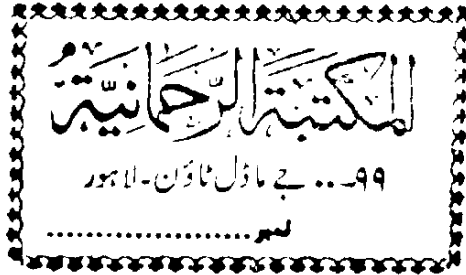 المکتبۃ الرحمانیۃ
۹۹۔۔۔ جے ماڈل ٹاؤن۔لاہور
نمبر....................